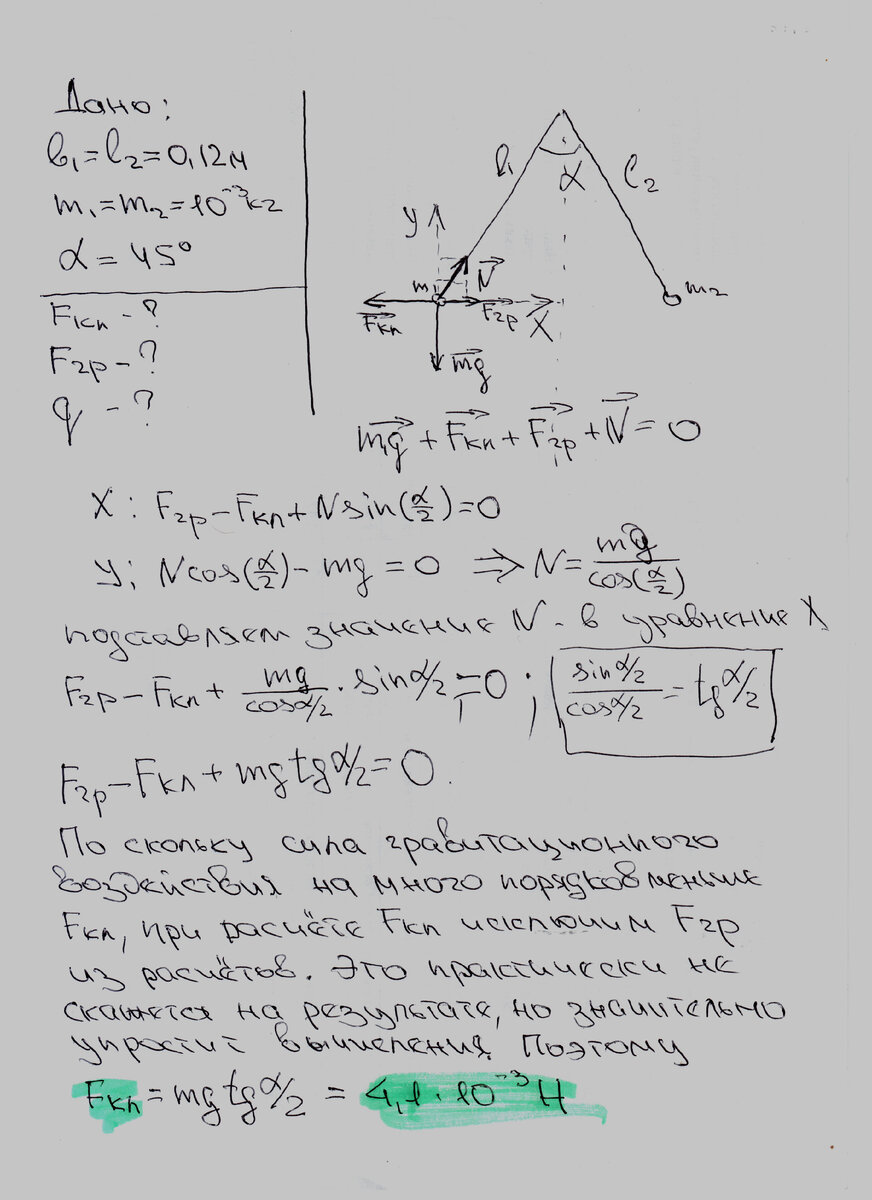 Дано:
l₁=l₂=0,12м
m₁=m₂=10⁻³кг
α=45°
Fкл-?
Fгр-?
q-?
l₁
α
l₂
y
N
m₁
m₂
Fкл
Fгр
X
mg
m₁g+Fкл+Fгр+N=0
X: Fгр-Fкл+Nsin(α/2)=0
У: Ncos(α/2)-mg=0 ⇒ N=mg/cos(α/2)
подставляем значение N - в уравнение X
Fгр-Fкл+mg/cosα/2·sinα/2=0; sinα/2/cosα/2=tgα/2
Fгр-Fкл+mgtgα/2=0.
По скольку сила гравитационного
воздействия на много порядков меньше
Fкл, при расчёте Fкл исключим Fгр
из расчётов. Это практически не
скажется на результате, но значительно
упростит вычисления. Поэтому
Fкл=mgtgα/2=4,1·10⁻³Н